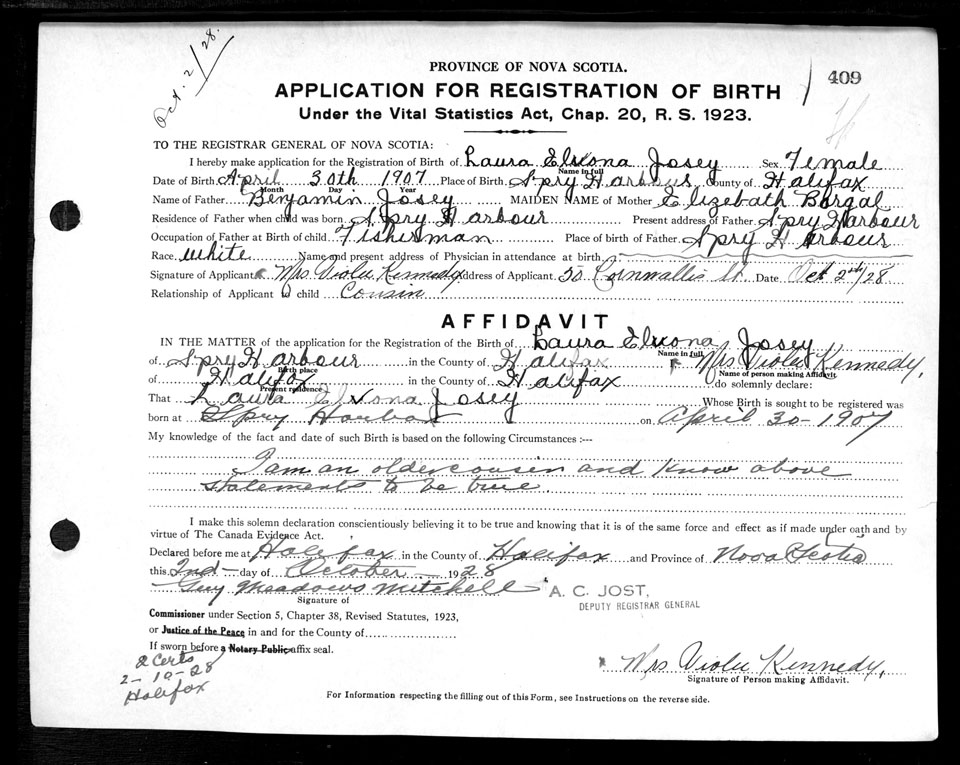 Oct. 2/28.
PROVINCE OF NOVA SCOTIA.
409
APPLICATION FOR REGISTRATION OF BIRTH
Under the Vital Statistics Act, Chap. 20, R. S. 1923.
TO THE REGISTRAR GENERAL OF NOVA SCOTIA:
I hereby make application for the Registration of Birth of Laura Josey Sex Female
Name in full
Date of Birth April 30th 1907 Place of Birth Spry Harbour County of Halifax
Month Day Year
Name of Father Benjamin Josey MAIDEN NAME of Mother Elizebath
Residence of Father when child was born Spry Harbour Present address of Father Spry Harbour
Occupation of Father at Birth of child Fisherman Place of birth of Father Spry Harbour
Race white Name and present address of Physician in attendance at birth
Signature of Applicant Mrs Violet Kennedy Address of Applicant 50 Cornwallis St Date Oct 2nd/28
Relationship of Applicant to child Cousin
AFFIDAVIT
IN THE MATTER of the application for the Registration of the Birth of Laura Josey
Name in full
of Spry Harbour in the County of Halifax Mrs Violet Kennedy,
Birth place
Name of person making Affidavit
of Halifax in the County of Halifax do solemnly declare:
Present residence
That Laura Josey Whose Birth is sought to be registered was
born at Spry Harbor on April 30-1907
My knowledge of the fact and date of such Birth is based on the following Circumstances :—
I am an older cousin and know above
statements to be true.
I make this solemn declaration conscientiously believing it to be true and knowing that it is of the same force and effect as if made under oath and by
virtue of The Canada Evidence Act.
Declared before me at Halifax in the County of Halifax and Province of Nova Scotia
this 2nd day of October 1928
Guy Meadows Mitchell
A. C. JOST,
DEPUTY REGISTRAR GENERAL
Signature of
Commissioner under Section 5, Chapter 38, Revised Statutes, 1923,
or Justice of the Peace in and for the County of
If sworn before a Notary Public affix seal.
2 Certs
2-10-28
Halifax
Mrs Violet Kennedy,
Signature of Person making Affidavit.
For Information respecting the filling out of this Form, see Instructions on the reverse side.